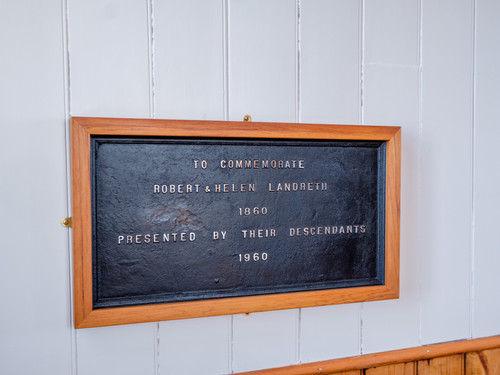 TO COMMEMORATE
ROBERT & HELEN LANDRETH
1860
PRESENTED BY THEIR DESCENDANTS
1960